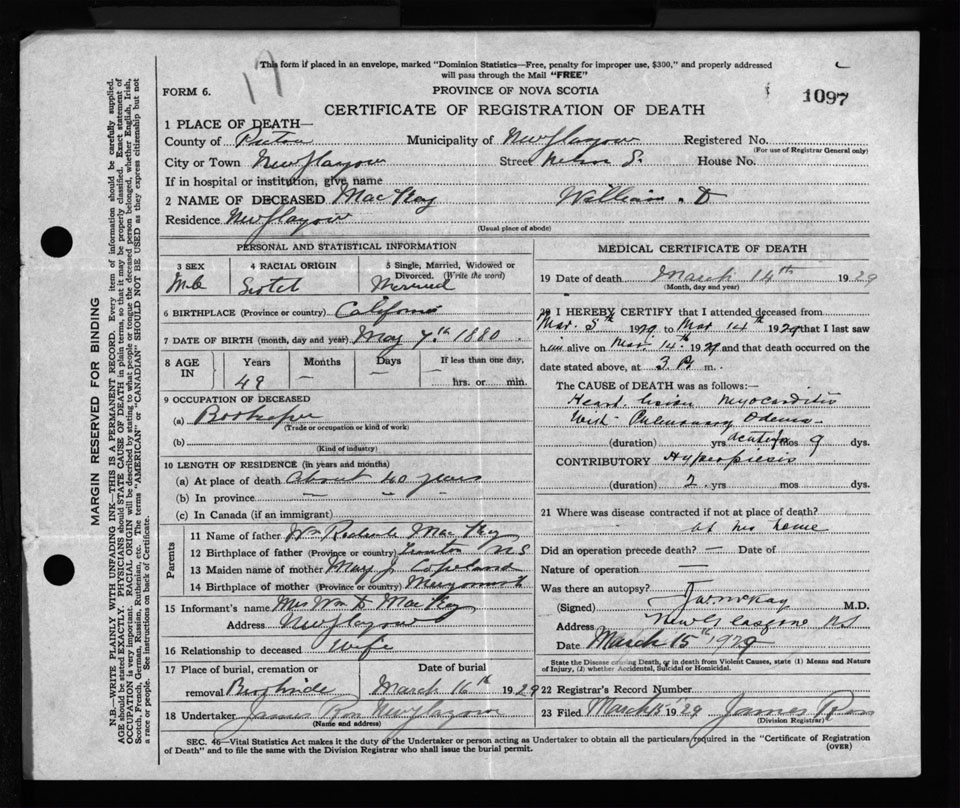 17
This form if placed in an envelope, marked "Dominion Statistics—Free, penalty for improper use, $300," and properly addressed
will pass through the Mail "FREE"
FORM 6.
PROVINCE OF NOVA SCOTIA
1097
CERTIFICATE OF REGISTRATION OF DEATH
1 PLACE OF DEATH—
County of Pictou Municipality of New Glasgow Registered No.
(For use of Registrar General only)
City or Town New Glasgow Street Nelson S. House No.
If in hospital or institution, give name
2 NAME OF DECEASED MacKay William D
Residence New Glasgow
(Usual place of abode)
PERSONAL AND STATISTICAL INFORMATION
3 SEX 4 RACIAL ORIGIN 5 Single, Married, Widowed or
Divorced. (Write the word)
Male Scotch Married
6 BIRTHPLACE (Province or country) California
7 DATE OF BIRTH (month, day and year) May 7th 1880
8 AGE IN Years Months Days If less than one day,
49 — — hrs. or min.
9 OCCUPATION OF DECEASED
(a) Bookkeeper
(Trade or occupation or kind of work)
(b)
(Kind of industry)
10 LENGTH OF RESIDENCE (in years and months)
(a) At place of death About 40 years
(b) In province — —
(c) In Canada (if an immigrant)
Parents
11 Name of father Wm MacKay
12 Birthplace of father (Province or country) N S
13 Maiden name of mother Mary J Copeland
14 Birthplace of mother (Province or country) Merigomish
15 Informant's name Mrs Wm D MacKay
Address New Glasgow
16 Relationship to deceased Wife
17 Place of burial, cremation or Date of burial
removal March 16th 1929
18 Undertaker James Ross New Glasgow
(Name and address)
MEDICAL CERTIFICATE OF DEATH
19 Date of death March 14th 1929
(Month, day and year)
20 I HEREBY CERTIFY that I attended deceased from
Mar. 5th 1929 to Mar 14th 1929 that I last saw
him alive on Mar. 14th 1929 and that death occurred on the
date stated above, at 3 P. m.
The CAUSE OF DEATH was as follows:—
Heart Myocarditis
with Pulmonary Edema
(duration) yrs. mos 9 dys.
CONTRIBUTORY Hyperpiesis
(duration) 2 yrs mos dys.
21 Where was disease contracted if not at place of death?
at his home
Did an operation precede death? — Date of
Nature of operation —
Was there an autopsy?
(Signed) McKay M.D.
Address New Glasgow NS
Date March 15th 1929
State the Disease causing Death, or in death from Violent Causes, state (1) Means and Nature
of Injury, (2) whether Accidental, Suicidal or Homicidal.
22 Registrar's Record Number
23 Filed March 15 1929 James Ross
(Division Registrar)
SEC. 46—Vital Statistics Act makes it the duty of the Undertaker or person acting as Undertaker to obtain all the particulars required in the "Certificate of Registration
of Death" and to file the same with the Division Registrar who shall issue the burial permit.
(OVER)
MARGIN RESERVED FOR BINDING
N.B.—WRITE PLAINLY WITH UNFADING INK—THIS IS A PERMANENT RECORD. Every item of information should be carefully supplied.
AGE should be stated EXACTLY. PHYSICIANS should STATE CAUSE OF DEATH in plain terms, so that it may be properly classified. Exact statement of
OCCUPATION is very important. RACIAL ORIGIN will be described by stating to what people or tongue the deceased person belonged, whether English, Irish,
Scotch, French, German, Russian, Ruthenian, etc. The terms "AMERICAN" or "CANADIAN" SHOULD NOT BE USED as they express citizenship but not
a race or people. See instructions on back of Certificate.